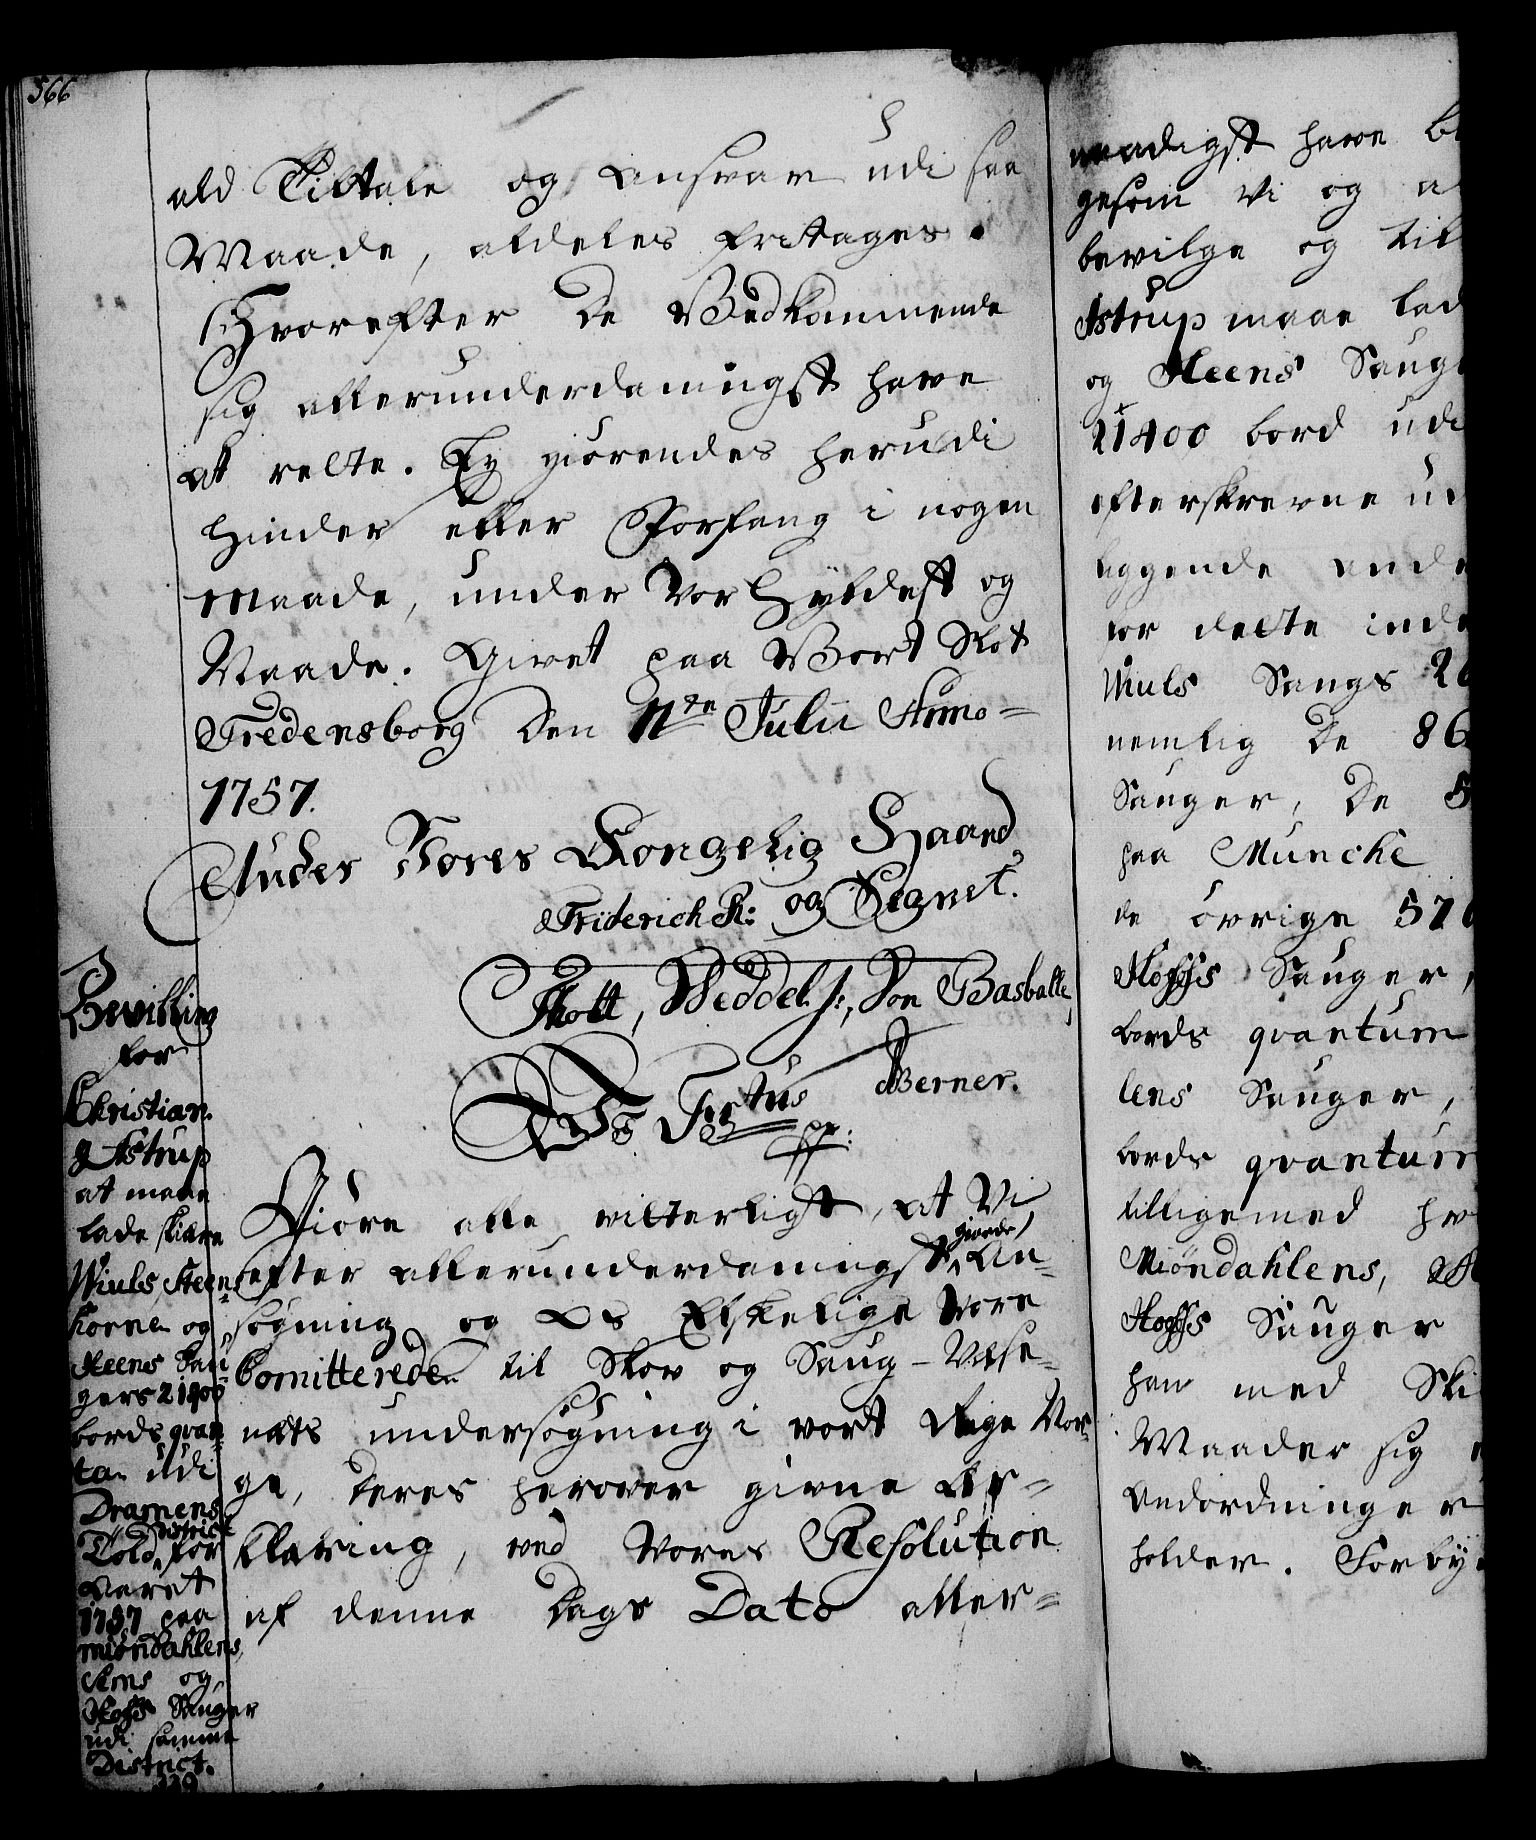 566
ald Tiltale og Ansvar udi saa
Maade, aldeles fritages.
Hvorefter De Vedkommende
sig allerunderdanigst have
at rette. Ey giörendes herudi
Hinder eller Forfang i nogen
Maade, under Vor Hyldest og
Naade. Givet paa Vort Slot
Fredensborg den 11te Julii Anno
1757.
Under Vores Kongelig Haand
og Signet.
Friderich R:
Thott, Weddel J:, Von Basballe,
Berner.
Giöre alle vitterligt, at Vi
efter allerunderdanigst giorde An-
søgning og Os Elskelige Vore
Comitterede til Skov og Saug-Væse-
nets undersögning i vort Rige Nor-
ge, deres herover givne Er-
klæring, ved Vores Resolution
af denne Dags Dato aller-
Bevilling
for
Christian
Astrup
at maae
lade skiære
Miuls, Steen-
Korne og
Heens Sau-
gers 21400
bords qvan-
ta udi
Dramens
Told District for
Aaret
1757 paa
Miöndahlens,
og
Hoffs Sauger
udi samme
District.
naadigst have
gesom Vi og
bevilge og til
Astrup maae lad
og Heens Saug
21400 bord udi
efterskrevne
liggende ande
for dette inde
Miuls Saugs
nemlig De 86
Sauger, De 5
paa Munche
de övrige 570
Hoffs Sauger,
bords qvantum
lens Sauger,
bords qvantum
tilligemed
Miöndahlens,
Hoffs Sauger
han med Ski
Maader sig
Anordninger
holder. Forby